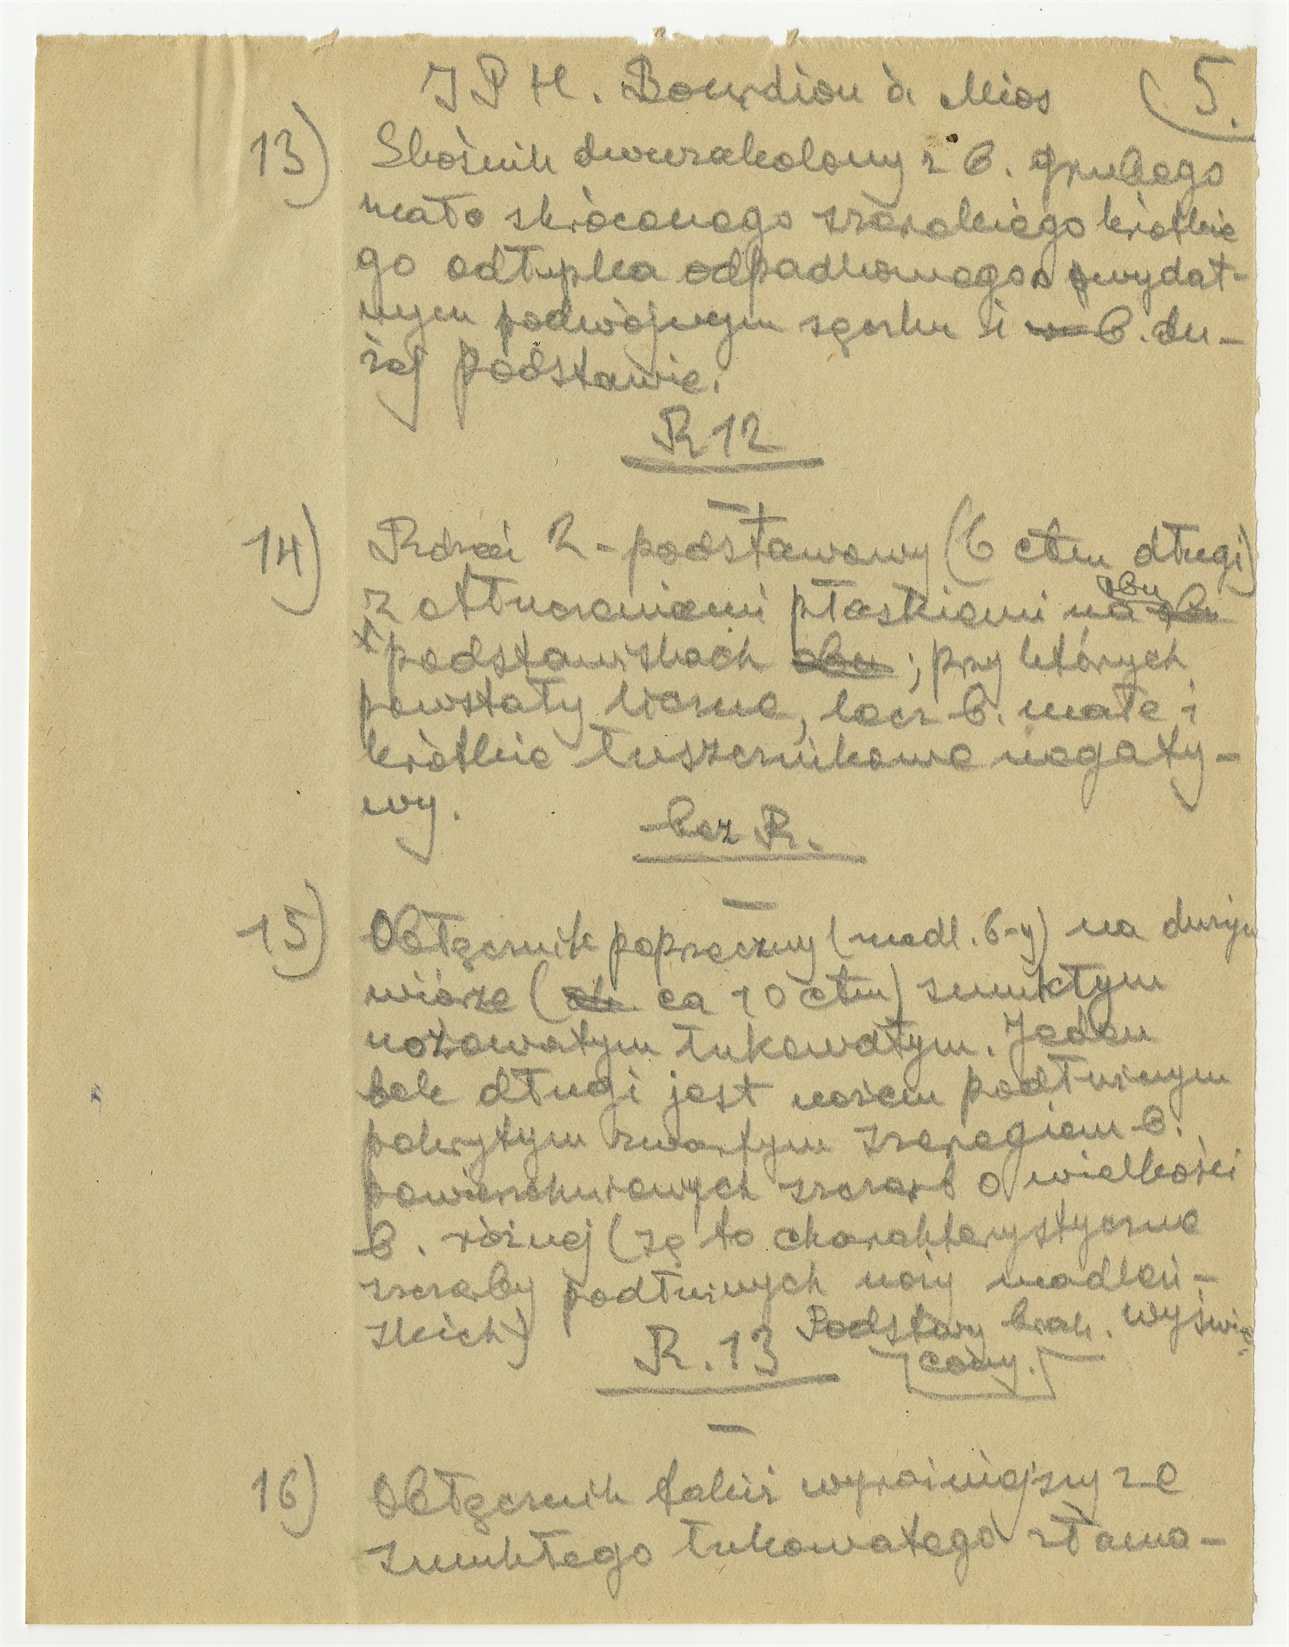 J P H. Bourdiou à Mios (5.
13) Skośnik dwurakolowy z b. grubego
mało skróconego szerokiego krótkie
go odłupka odpadkowego o wydat-
nym podwójnym sęczku i b. du-
żej podstawie.
R 12
14) Rdzeń 2-podstawowy (6 ctm długi)
z otłuczeniami płaskiemi na obu
podstawkach ; przy których
powstały liczne, lecz b. małe i
krótkie łuszcznikowe negaty-
wy.
bez R.
15) Obłęcznik poprzeczny (madl. b-y) na dużym
wiórze ( ca 10 ctm) smukłym
nożowatym łukowatym. Jeden
bok długi jest nożem podłużnym
pokrytym zwartym szeregiem b.
powierzchniowych szczerb o wielkości
b. różnej (są to charakterystyczne
szczerby podłużnych noży madleń-
skich)
R. 13 Podstawy brak. Wyświę
cony.
16) Obłęcznik takiż wyraźniejszy ze
smukłego łukowatego złama-